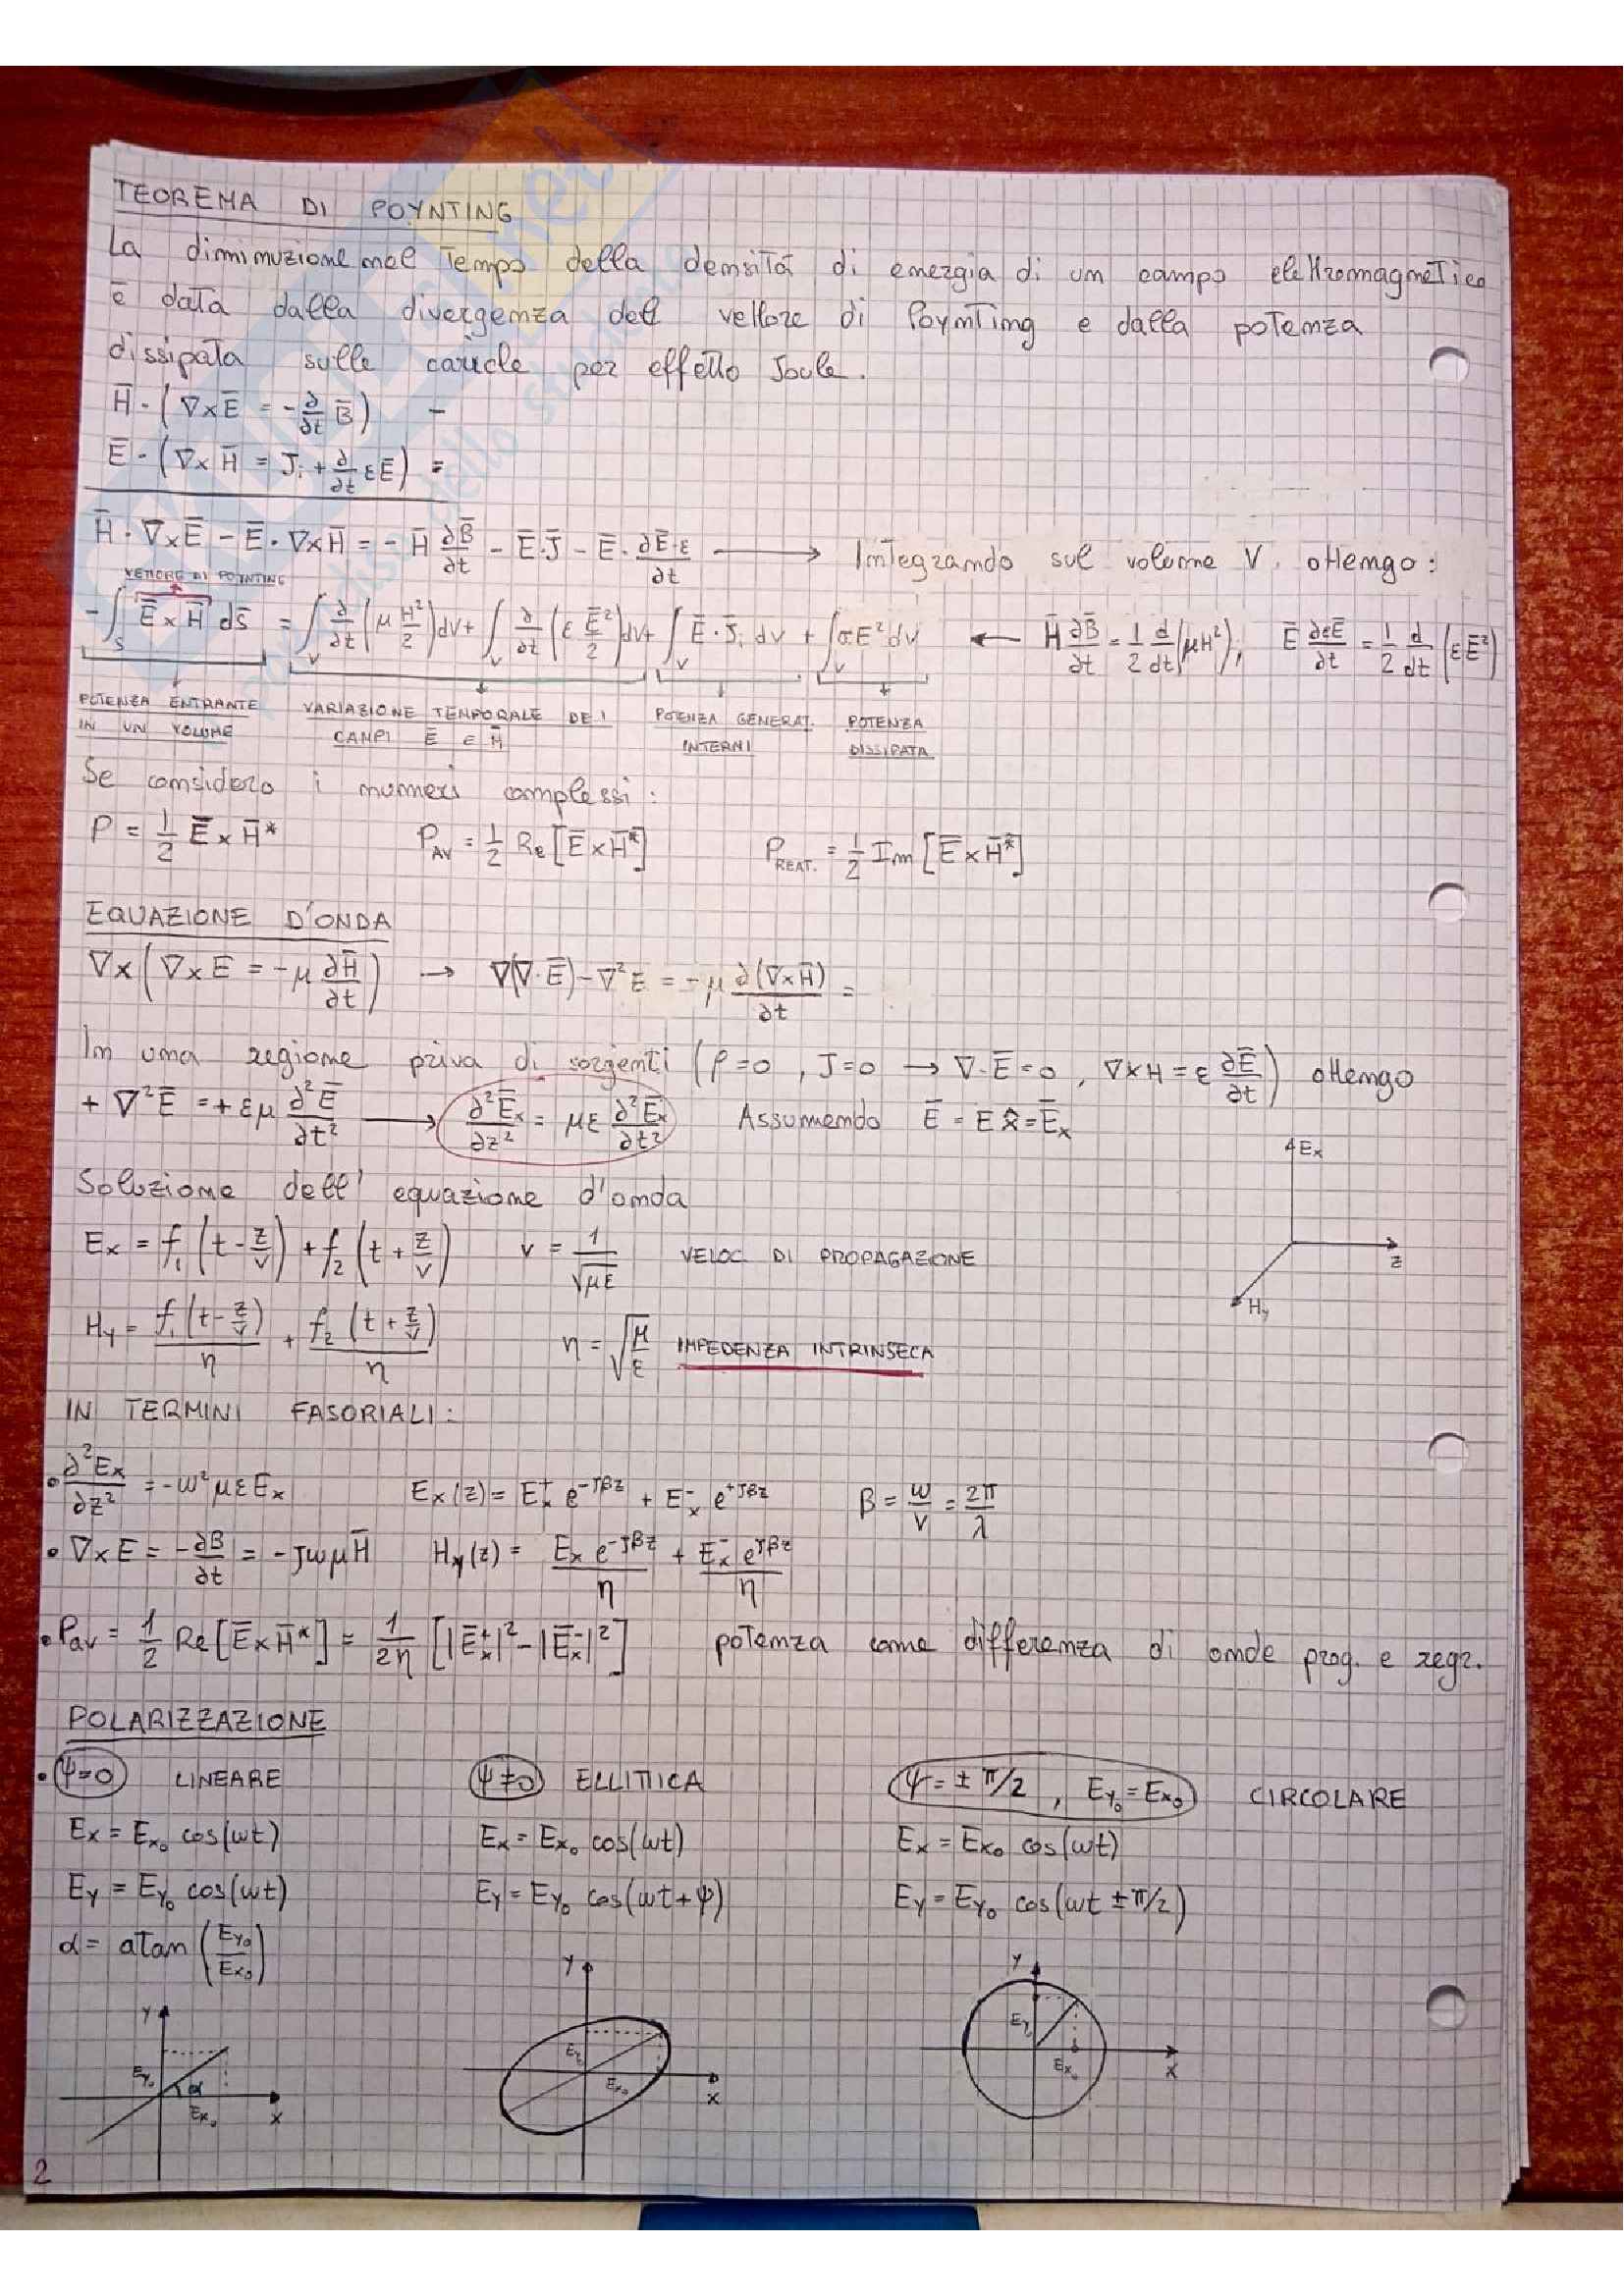 TEOREMA DI POYNTING
La diminuzione nel tempo della densità di energia di un campo elettromagnetico
è data dalla divergenza del vettore di Poynting e dalla potenza
dissipata sulle cariche per effetto Joule.
H̄ · (∇×Ē = -∂/∂t B̄) -
Ē · (∇×H̄ = J̄ᵢ + ∂/∂t εĒ) =
H̄ · ∇×Ē - Ē · ∇×H̄ = - H̄ ∂B̄/∂t - Ē·J̄ - Ē · ∂Ē·ε/∂t → Integrando sul volume V, ottengo:
VETTORE DI POYNTING
-∫_S Ē×H̄ ds̄ = ∫_V ∂/∂t (μ H²/2) dv + ∫_V ∂/∂t (ε Ē²/2) dv + ∫_V Ē·J̄ᵢ dv + ∫_V σE² dv ← H̄ ∂B̄/∂t = 1/2 d/dt (μH²); Ē ∂εĒ/∂t = 1/2 d/dt (εĒ²)
POTENZA ENTRANTE IN UN VOLUME
VARIAZIONE TEMPORALE DEI CAMPI Ē E H̄
POTENZA GENERAT. INTERNI
POTENZA DISSIPATA
Se considero i numeri complessi:
P = 1/2 Ē×H̄* P_AV = 1/2 Re[Ē×H̄*] P_REAT. = 1/2 Im[Ē×H̄*]
EQUAZIONE D'ONDA
∇×(∇×Ē = -μ ∂H̄/∂t) → ∇(∇·Ē) - ∇²E = -μ ∂(∇×H̄)/∂t =
In una regione priva di sorgenti (ρ=0, J=0 → ∇·Ē=0, ∇×H = ε ∂Ē/∂t) ottengo
+ ∇²Ē = +εμ ∂²Ē/∂t² → ∂²Ēx/∂z² = με ∂²Ēx/∂t² Assumendo Ē = E x̂ = Ēx
Ex
z
Hy
Soluzione dell' equazione d'onda
Ex = f₁(t - z/v) + f₂(t + z/v) v = 1/√με VELOC DI PROPAGAZIONE
Hy = f₁(t - z/v)/η + f₂(t + z/v)/η η = √μ/ε IMPEDENZA INTRINSECA
IN TERMINI FASORIALI:
• ∂²Ex/∂z² = -ω²μεEx Ex(z) = Ex⁺ e^-Jβz + Ex⁻ e^+Jβz β = ω/v = 2π/λ
• ∇×E = -∂B/∂t = -JωμH̄ Hy(z) = Ex e^-Jβz/η + Ex⁻ e^Jβz/η
• Pav = 1/2 Re[Ē×H̄*] = 1/2η [|Ēx⁺|² - |Ēx⁻|²] potenza come differenza di onde prog. e regr.
POLARIZZAZIONE
• ψ=0 LINEARE
Ex = Ex₀ cos(ωt)
Ey = Ey₀ cos(ωt)
α = atan(Ey₀/Ex₀)
Y
Ey₀
α
Ex₀
X
ψ≠0 ELLITTICA
Ex = Ex₀ cos(ωt)
Ey = Ey₀ cos(ωt+ψ)
Y
Ey₀
Ex₀
X
ψ = ± π/2, Ey₀ = Ex₀ CIRCOLARE
Ex = Ex₀ cos(ωt)
Ey = Ey₀ cos(ωt ± π/2)
Y
Ey₀
Ex₀
X
2